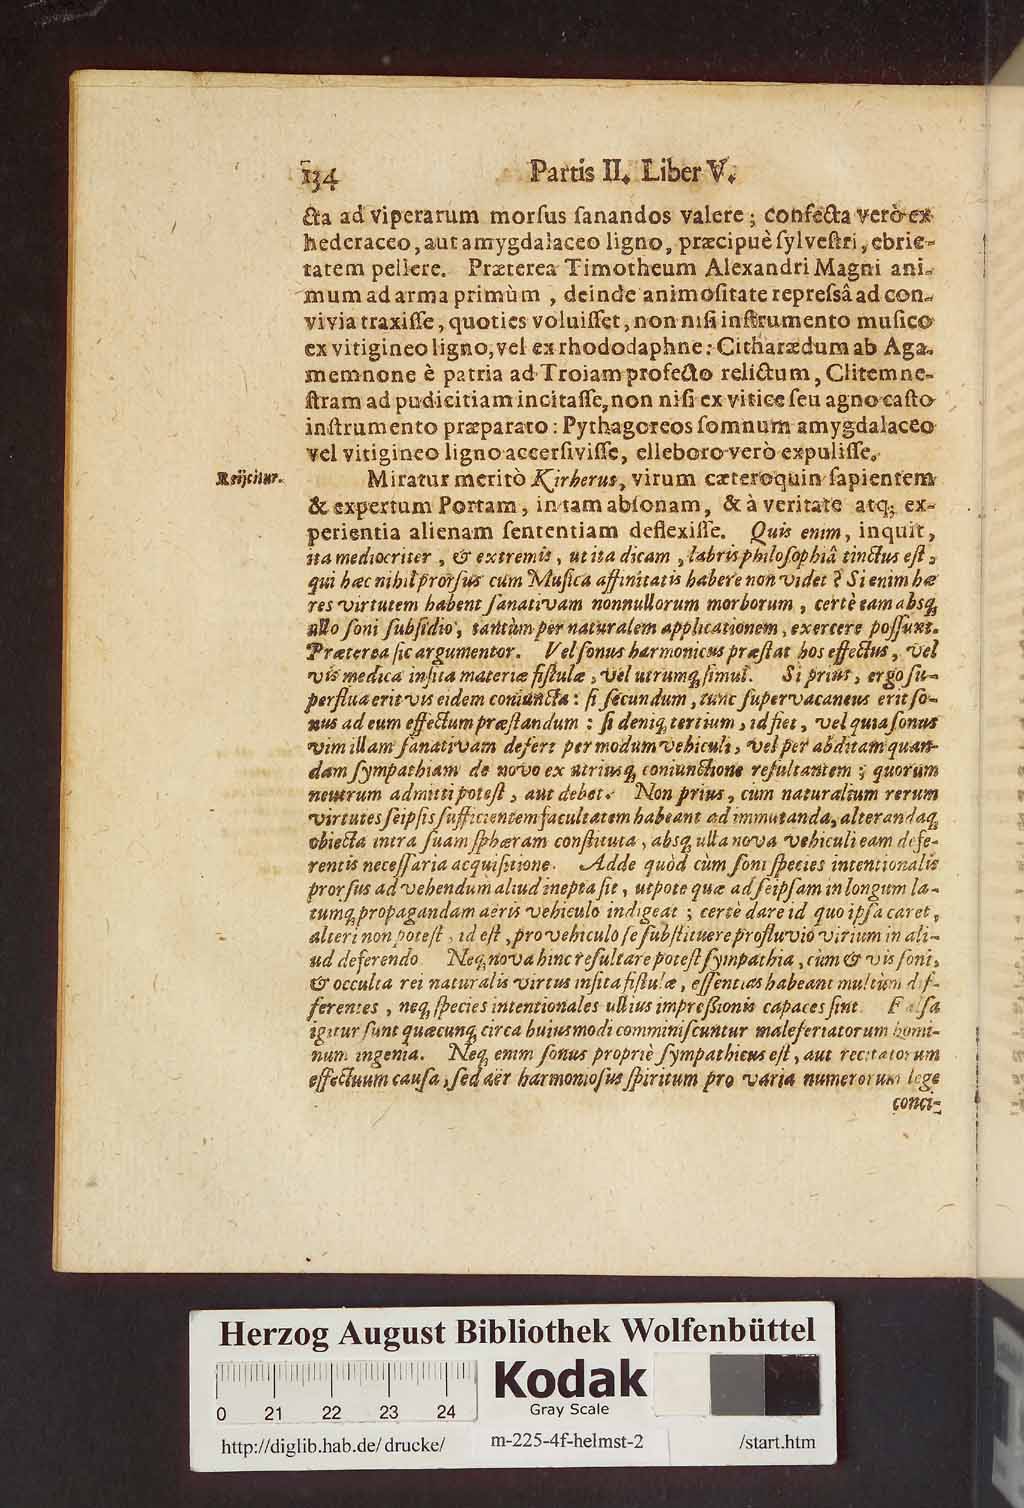 134 Partis II. Liber V.
cta ad viperarum morſus ſanandos valere; confecta verò ex
hederaceo, aut amygdalaceo ligno, præcipuè ſylveſtri, ebrie-
tatem pellere. Præterea Timotheum Alexandri Magni ani-
mum ad arma primùm, deinde animoſitate repreſsâ ad con-
vivia traxiſſe, quoties voluiſſet, non niſi inſtrumento muſico
ex vitigineo ligno, vel ex rhododaphne: Citharædum ab Aga-
memnone è patria ad Troiam profecto relictum, Clitemne-
ſtram ad pudicitiam incitaſſe, non niſi ex vitice ſeu agno caſto
inſtrumento præparato: Pythagoreos ſomnum amygdalaceo
vel vitigineo ligno accerſiviſſe, elleboro verò expuliſſe.
Reijcitur. Miratur meritò Kirherus, virum cæteroquin ſapientem
& expertum Portam, in tam abſonam, & à veritate atq; ex-
perientia alienam ſententiam deflexiſſe. Quis enim, inquit,
ita mediocriter, & extremis, ut ita dicam, labris philoſophiâ tinctus eſt,
qui hæc nihil prorſus cum Muſica affinitatis habere non videt? Si enim hæ
res virtutem habent ſanativam nonnullorum morborum, certè eam absq;
ullo ſoni ſubſidio, tantùm per naturalem applicationem, exercere poſſunt.
Præterea ſic argumentor. Vel ſonus harmonicus præſtat hos effectus, vel
vis medica inſita materiæ fiſtulæ, vel utrumq; ſimul. Si prius, ergo ſu-
perflua erit vis eidem coniuncta: ſi ſecundum, tunc ſupervacaneus erit ſo-
nus ad eum effectum præſtandum: ſi deniq; tertium, id fiet, vel quia ſonus
vim illam ſanativam defert per modum vehiculi, vel per abditam quan-
dam ſympathiam de novo ex utriusq; coniunctione reſultantem; quorum
neutrum admitti poteſt, aut debet. Non prius, cum naturalium rerum
virtutes ſeipſis ſufficientem facultatem habeant ad immutanda, alterandaq;
obiecta intra ſuam ſphæram conſtituta, absq; ulla nova vehiculi eam defe-
rentis neceſſaria acquiſitione. Adde quòd cùm ſoni ſpecies intentionalis
prorſus ad vehendum aliud inepta ſit, utpote quæ ad ſeipſam in longum la-
tumq; propagandam aëris vehiculo indigeat; certè dare id quo ipſa caret,
alteri non poteſt, id eſt, pro vehiculo ſe ſubſtituere profluvio virium in ali-
ud deferendo. Neq; nova hinc reſultare poteſt ſympathia, cùm & vis ſoni,
& occulta rei naturalis virtus inſita fiſtulæ, eſſentias habeant multùm dif-
ferentes, neq; ſpecies intentionales ullius impreſſionis capaces ſint. Falſa
igitur ſunt quæcunq; circa huiusmodi comminiſcuntur maleferiatorum homi-
num ingenia. Neq; enim ſonus propriè ſympathicus eſt, aut recitatorum
effectuum cauſa, ſed aër harmonioſus ſpiritum pro varia numerorum lege
conci-
Herzog August Bibliothek Wolfenbüttel
Kodak
Gray Scale
0 21 22 23 24
http://diglib.hab.de/drucke/ m-225-4f-helmst-2 /start.htm